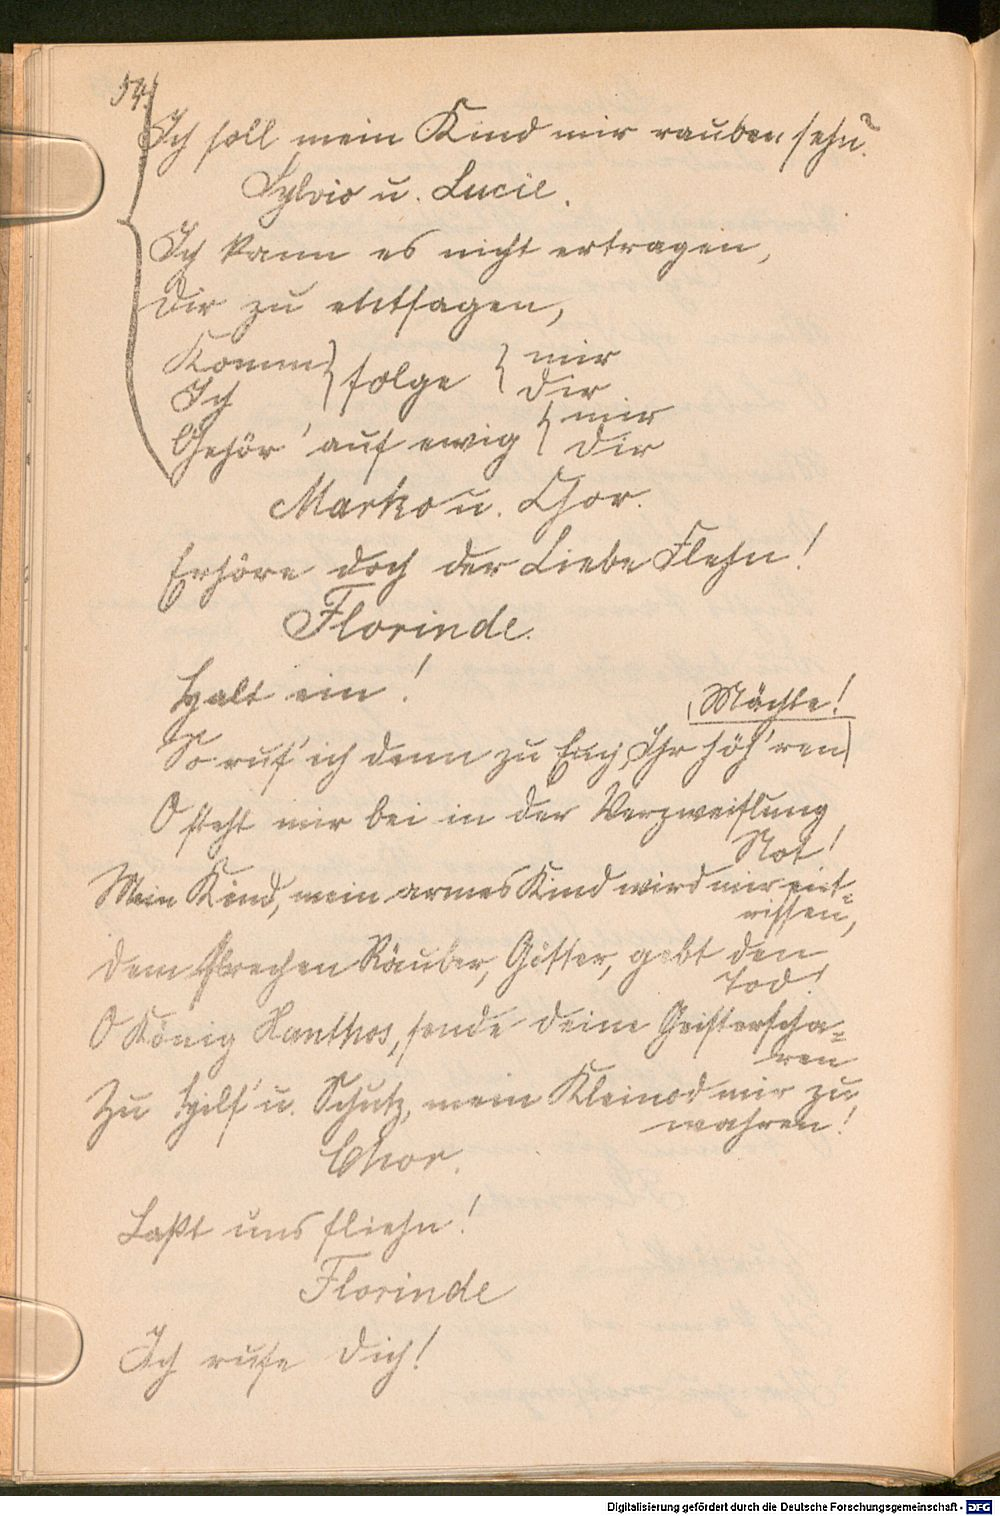 54.
Ich soll mein Kind mir rauben sehn?
Sylvio u. Lucie.
Ich kann es nicht ertragen,
Dir zu entsagen,
Komm } folge { mir
Ich dir
Gehör' auf ewig { mir
dir
Marko u. Chor.
Erhöre doch der Liebe Flehn!
Florinde.
Halt ein!
Mächte!
So ruf' ich denn zu Euch, Ihr höh'ren
O steht mir bei in der Verzweiflung
Not!
Mein Kind, mein armes Kind wird mir ent-
rissen,
Dem frechen Räuber, Götter, gebt den
Tod!
O König Xanthos, sende deine Geisterscha-
ren
Zu Hilf' u. Schutz, mein Kleinod mir zu
wahren!
Chor.
Laßt uns fliehn!
Florinde
Ich rufe Dich!
Digitalisierung gefördert durch die Deutsche Forschungsgemeinschaft - DFG